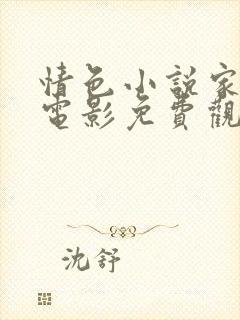 情色小說家
電影免費觀
沈舒